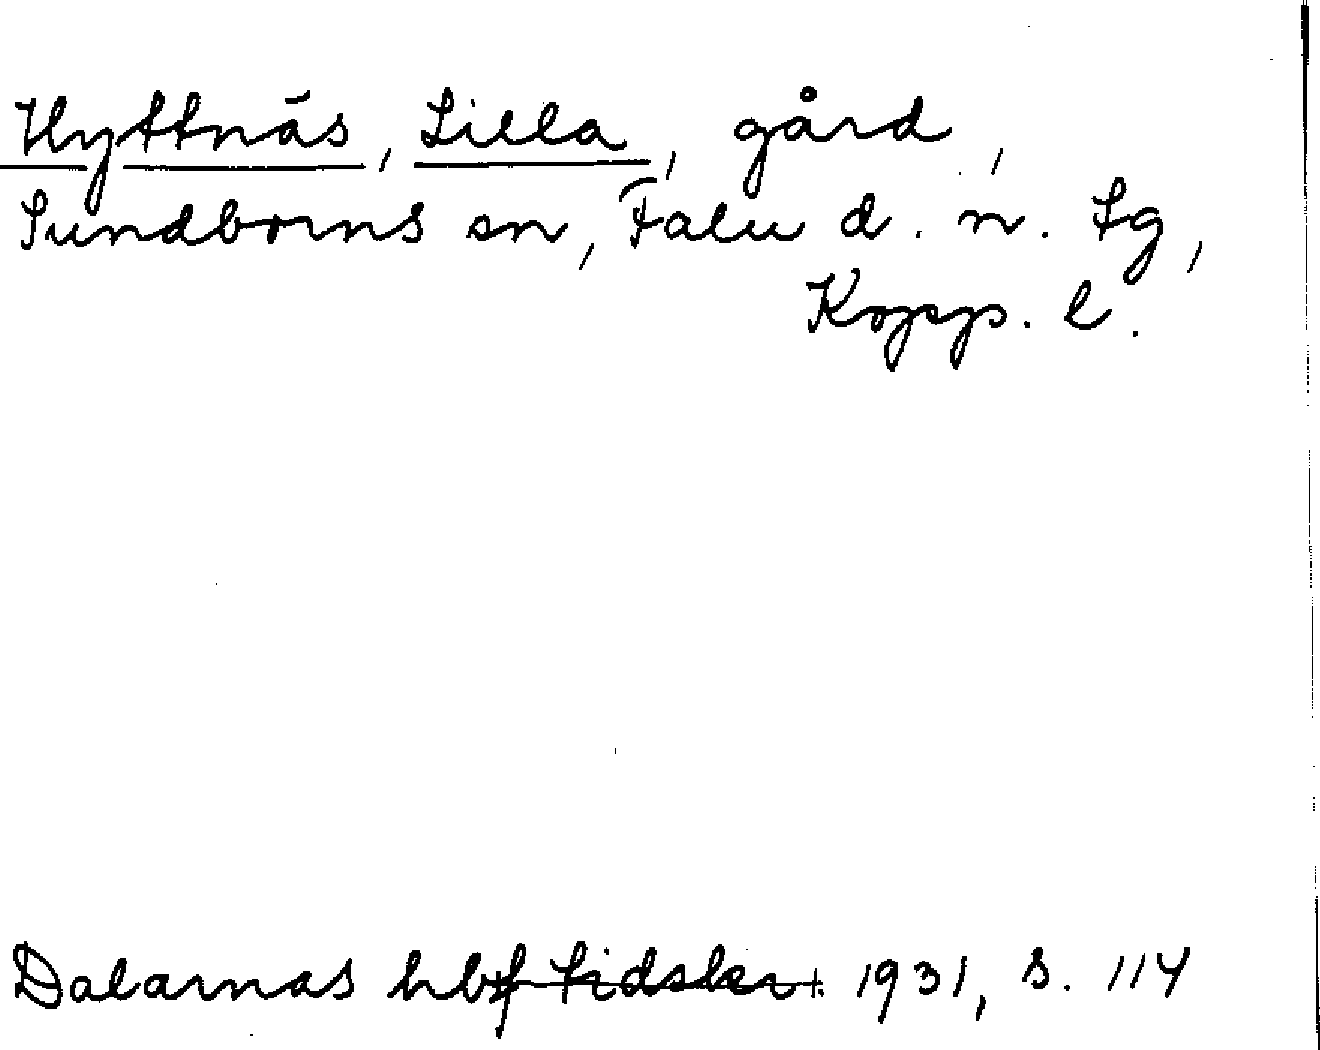 Hyttnäs, Lilla, gård,
Sundborns sn, Falu d. n. tg,
Kopp. l.
Dalarnas hbf tidskr. 1931, s. 114